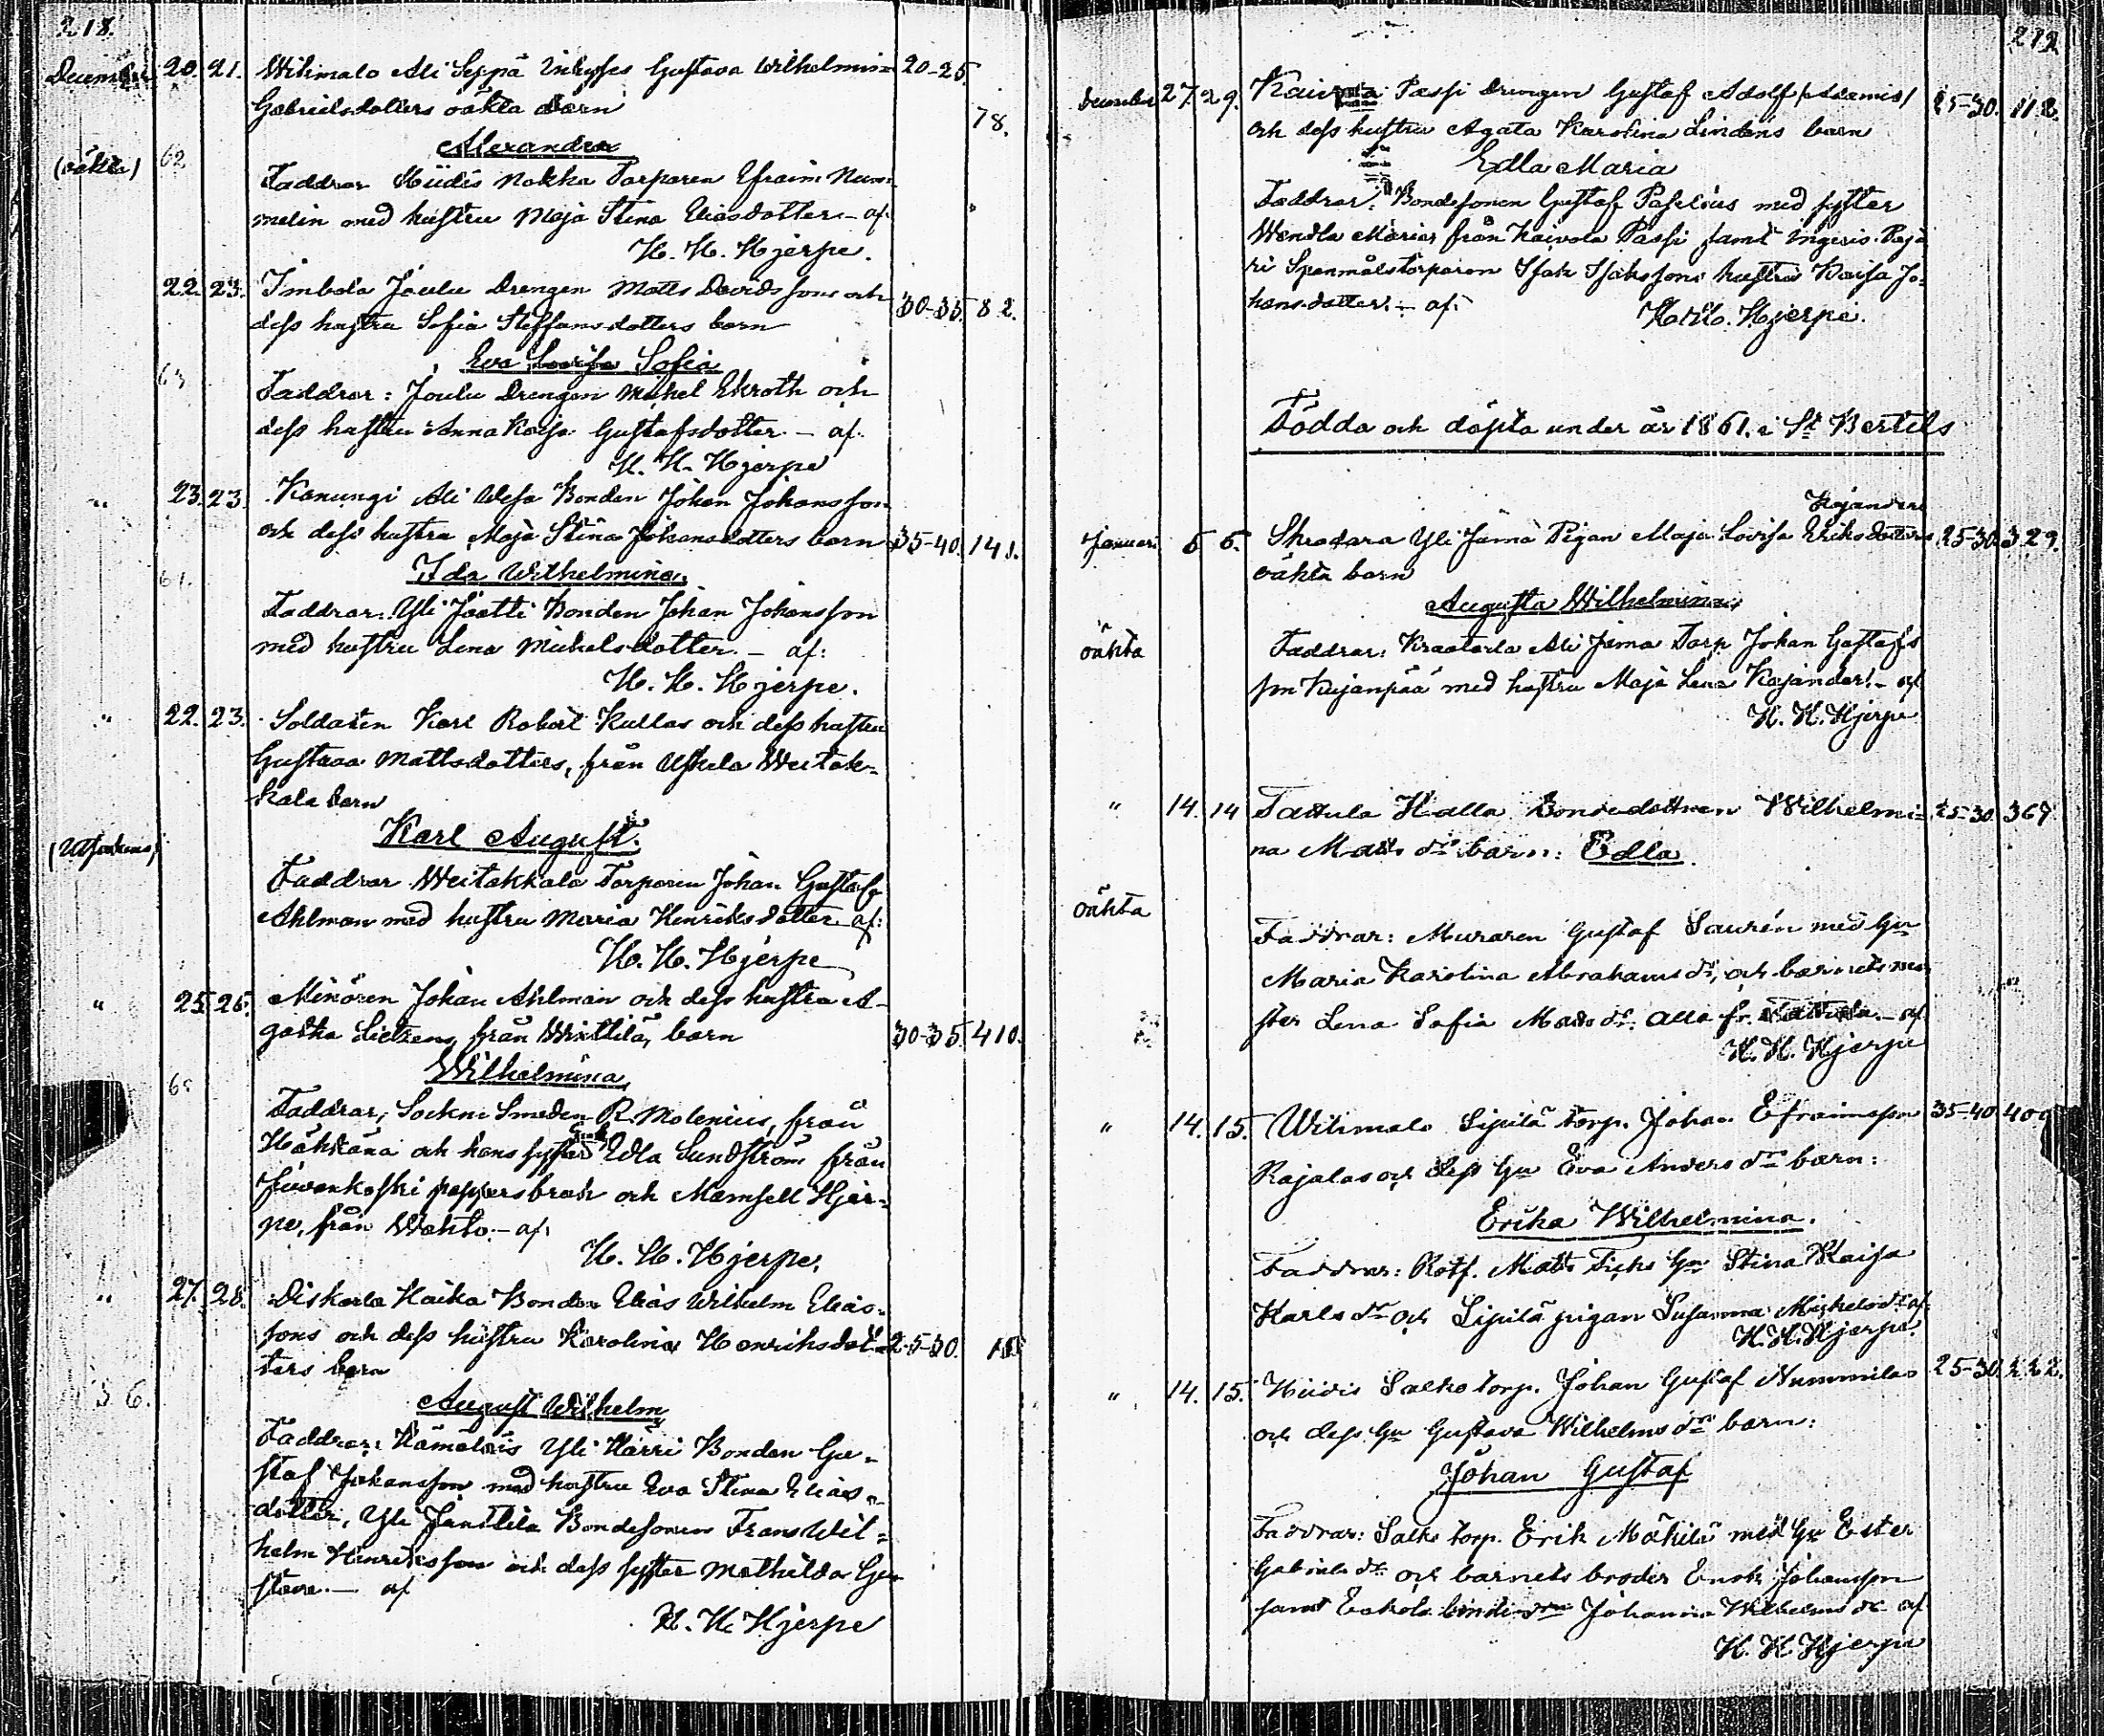 218.
December 20. 21. Wihmalo Ali Seppä Inhyses Gustava Wilhelmina 20-25
Gabrielsdotters oäkta barn 78.
Alexandra
(oäkta) 62
Faddrar Hiidis Nokka Torparen Efraim Num-
melin med hustru Maja Stina Eliasdotter – af
H. H. Hjerpe.
22. 23. Imbola Joulu Drengen Matts Davidssons och 30-35. 82.
dess hustru Sofia Steffansdotters barn
Eva Lovisa Sofia
63
Faddrar: Joulu Drengen Mikel Ekroth och
dess hustru Anna Kaisa Gustafsdotter – af
H. H. Hjerpe
" 23. 23. Kanungi Ali Wesa Bonden Johan Johansson
och dess hustru Maja Stina Johansdotters barn 35-40. 141.
Ida Wilhelmina
Faddrar: Yli Jaatti Bonden Johan Johansson
med hustru Lena Michelsdotter. – af:
H. H. Hjerpe.
" 22. 23. Soldaten Karl Robert Kullas och dess hustru
Gustava Mattsdotters, från Uskela Weitak-
kala barn
Karl August.
Faddrar Weitakkala Torparen Johan Gustaf
Ahlman med hustru Maria Henriksdotter af:
H. H. Hjerpe
" 25. 26. Minören Johan Ahlman och dess hustru A-
gatha från barn 30-35. 410.
Wilhelmina
Faddrar, Sockne Smeden R. Molenius, från
och hans syster Edla Sundström från
Juvankoski pappersbruk och Mamsell Hjer-
pe, från Wahto. – af.
H. H. Hjerpe.
" 27. 28. Diskarla Kaika Bonden Elias Wilhelm Elias-
sons och dess hustru Karolina Henriksdot- 25-30.
ters barn
36.
August Wilhelm
Faddrar: Yli Kärri Bonden Gu-
staf Johansson med hustru Eva Stina Elias-
dotter, Yli Jänttilä Bondesonen Frans Wil-
helm Henriksson och dess syster Mathilda Gu-
stava. – af
H. H. Hjerpe
219.
December 27. 29. Passi Drengen Gustaf Adolf (Adamis) 25-30. 112.
och dess hustru Agata Karolina Lindéns barn
Edla Maria
Faddrar: Bondesonen Gustaf med syster
Wendla Maria, från Kaivola Passi samt Ingeris Paja-
ri Spanmålstorparen Isak Isakssons hustru Kaisa Jo-
hansdotter. – af:
H. H. Hjerpe.
Födda och döpta under år 1861. i St. Bertils
Kojanders
Januari 5 6. Yli Jama Pigan Maja Lovisa Eriksdotters 25-30. 329.
oäkta barn
Augusta Wilhelmina
oäkta
Faddrar: Ali Jama Torp. Johan Gustafs
son Kujanpää med hustru Maja Lena Kojander. – af
H. H. Hjerpe
" 14. 14 Tattula Halla Bondedottren Wilhelmi- 25-30. 367.
na Mats dr. barn: Edla.
oäkta
Faddrar: Muraren Gustaf Saurén med hu
Maria Karolina Abrahams dr, och barnets mo-
ster Lena Sofia Mats dr. alla fr. Tattula. – af
H. H. Hjerpe
" 14. 15. Wihmalo Sipilä torp. Johan Efraimsson 35-40 409
Rajalas och dess hu Eva Anders drs barn:
Erika Wilhelmina.
Faddrar: Rotf. Matts Fichs hu Stina Kaisa
Karls dr och Sipilä pigan Susanna Mickels dr af
H. H. Hjerpe.
" 14. 15. Hiidis Salko torp. Johan Gustaf Nummilas 25-30. 222.
och dess hu Gustava Wilhelms drs barn:
Johan Gustaf
Faddrar: Salko torp. Erik Mäkilä med hu Ester
Gabriels dr och barnets broder Enok Johansson
samt Johanna Wilhelms dr af
H. H. Hjerpe